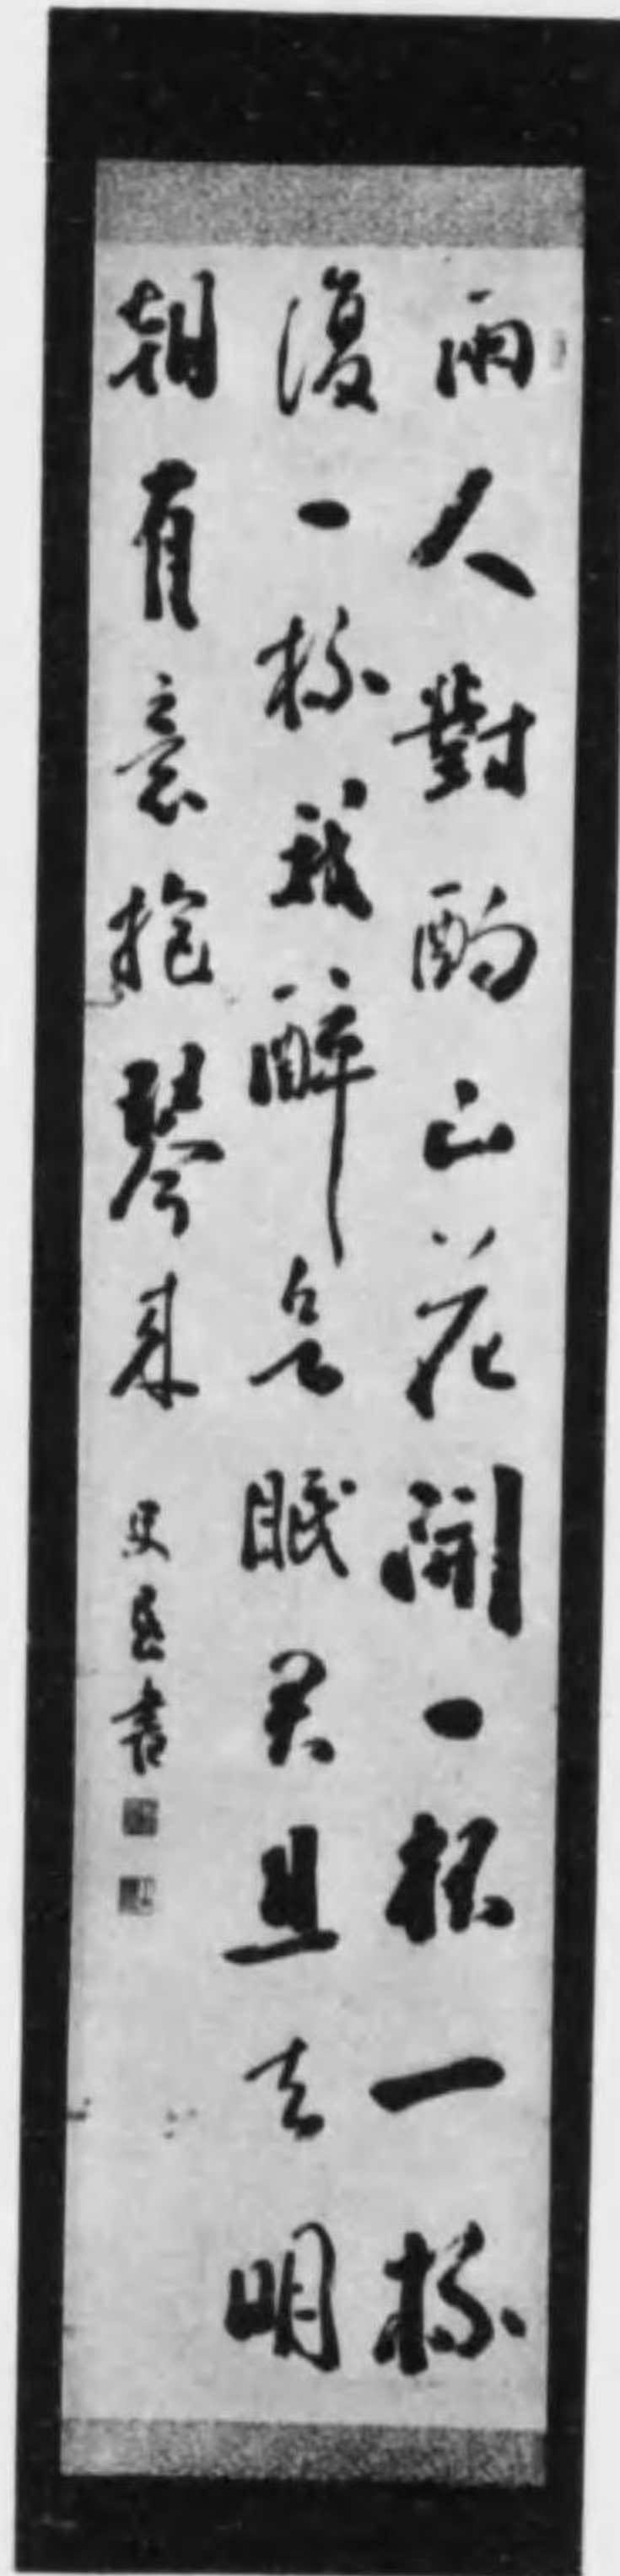 兩人對酌山花開一杯一杯
復一杯我醉欲眠君且去明
朝有意抱琴来
史 書